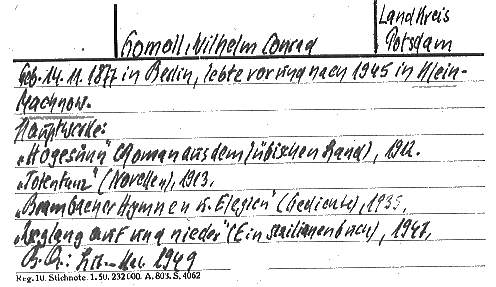 Landkreis
Gomoll, Wilhelm Conrad Potsdam
Geb. 14.11.1877 in Berlin, lebte vor und nach 1945 in Klein-
machnow.
Hauptwerke:
(Roman aus dem lübischen Land), 1912.
„Totentanz" (Novellen), 1913.
„Brambacher Hymnen u. Elegien" (Gedichte), 1935.
auf und nieder" (Ein Sizilianenbuch), 1947.
1949
Reg. 10. Stichnote. 1.50. 232000. A. 803. S. 4062